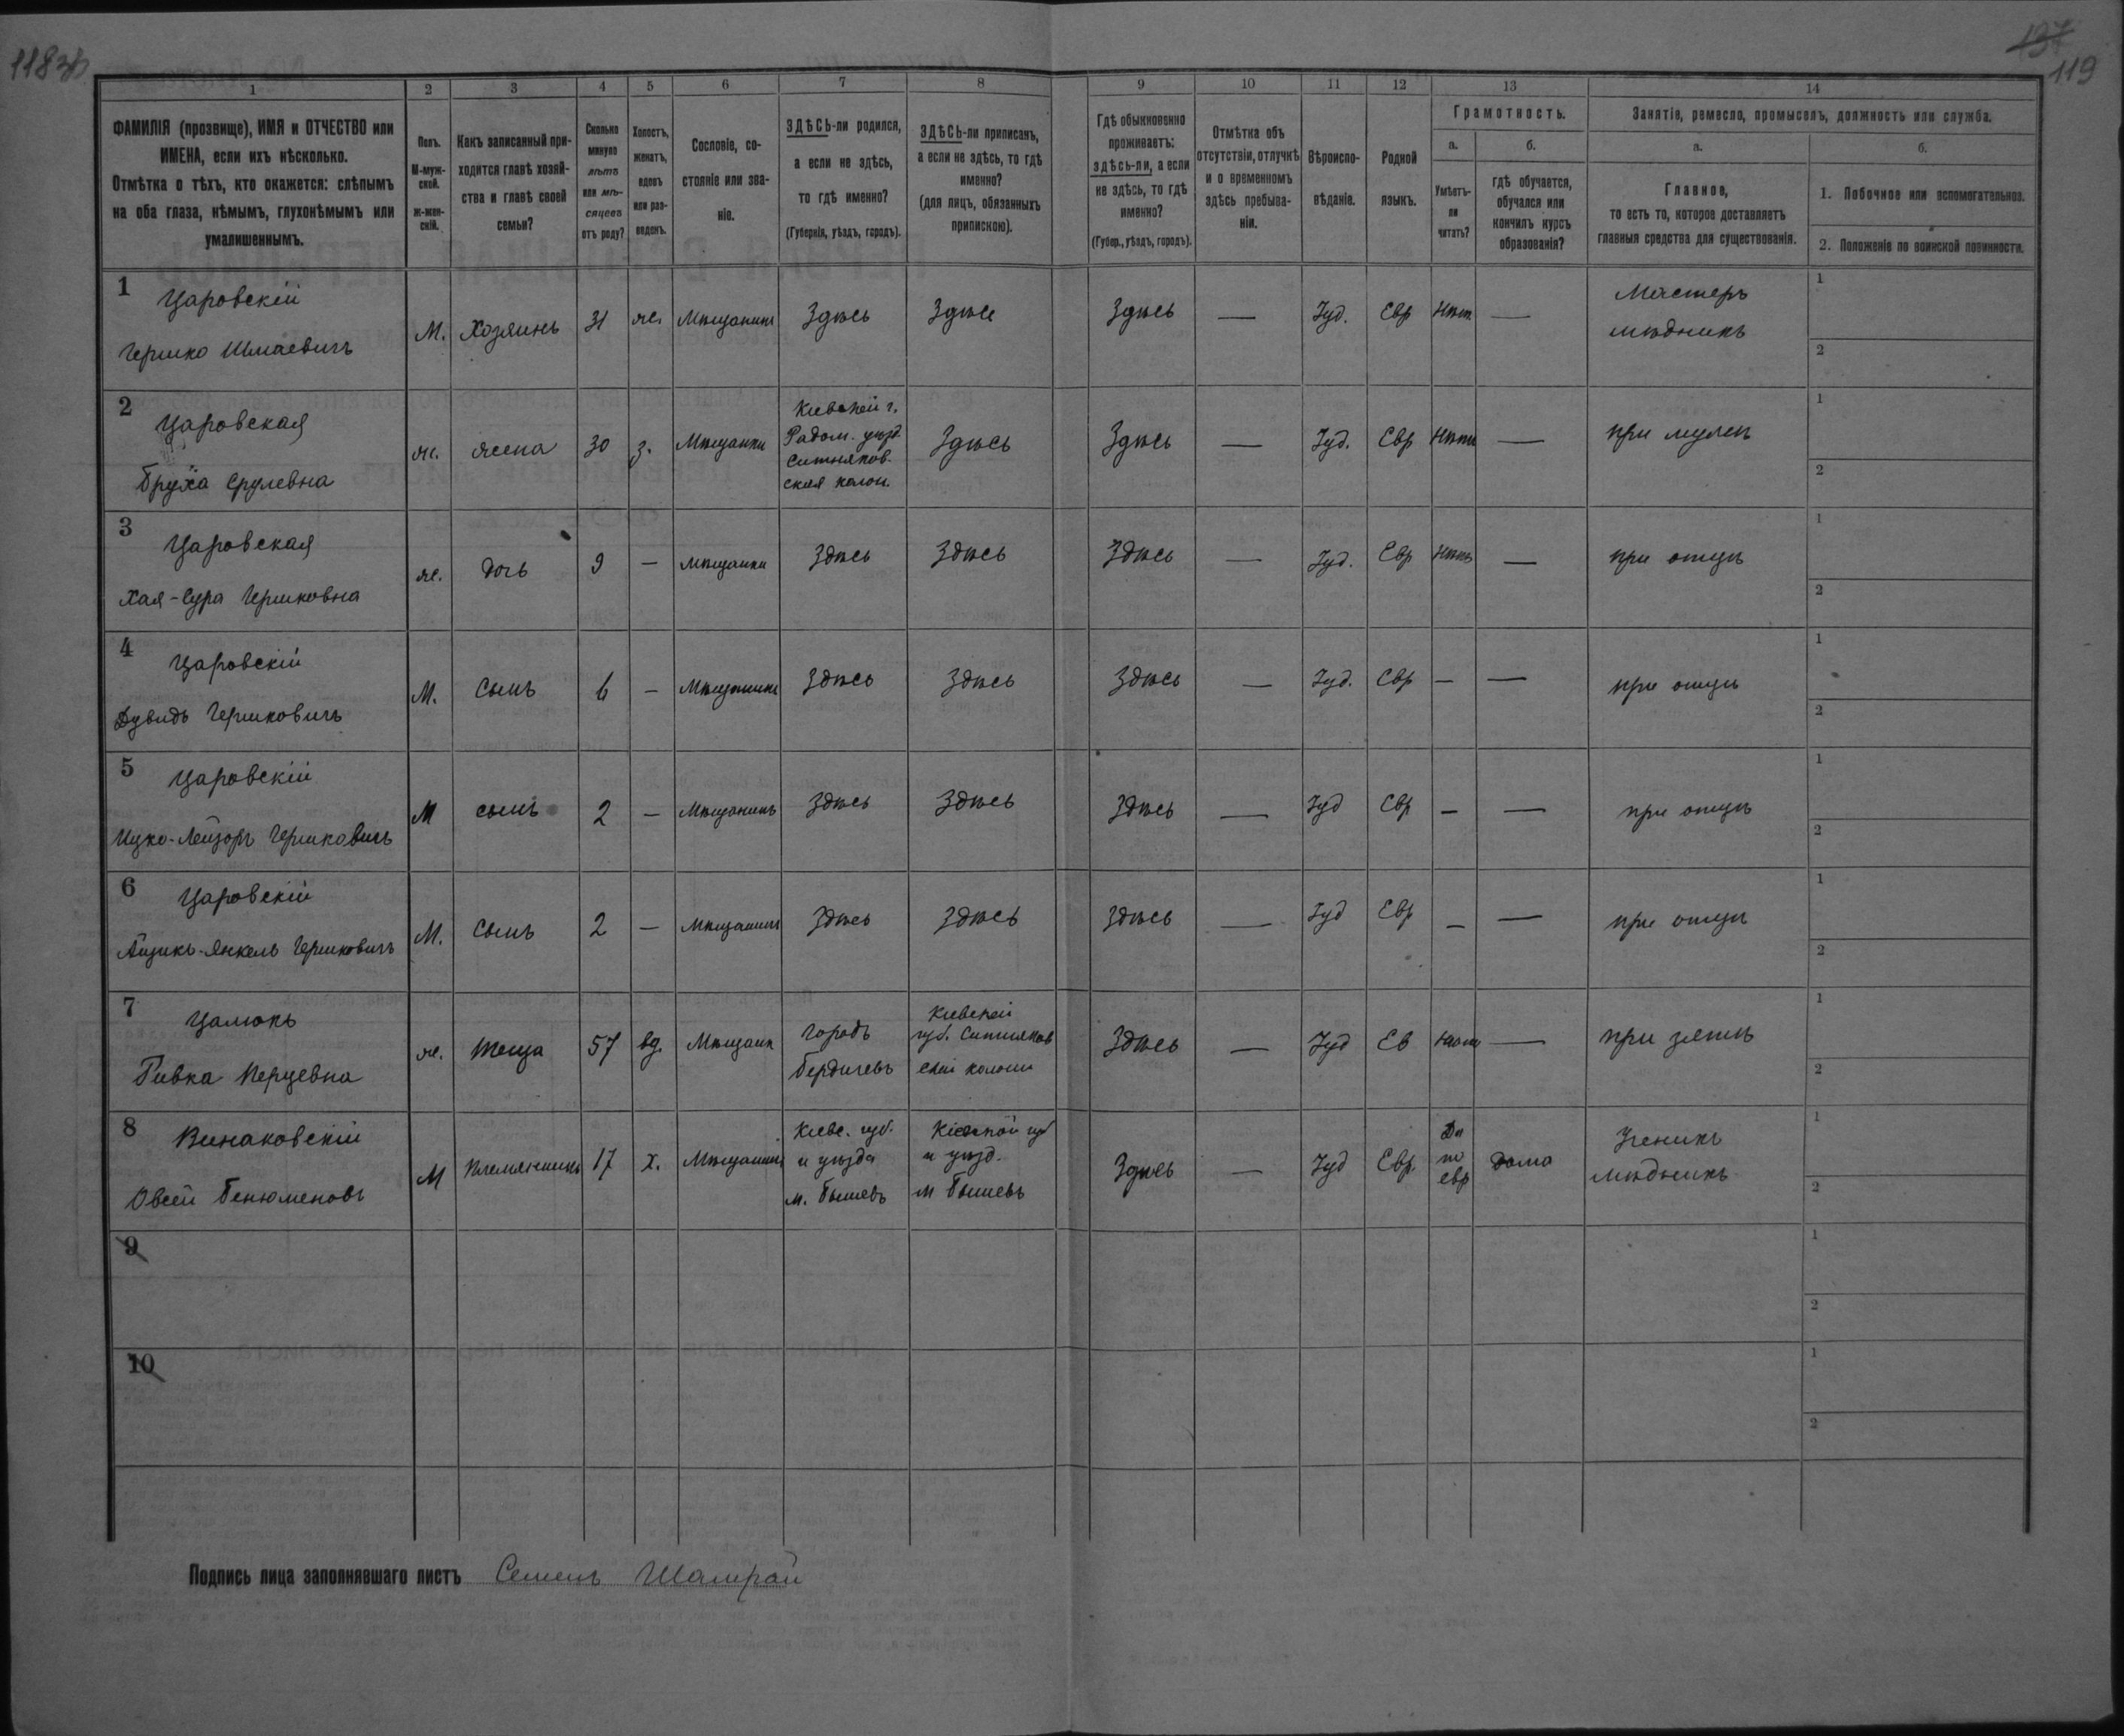 118 об
137
119
1
2
3
4
5
6
7
8
9
10
11
12
13
14
ФАМИЛІЯ (прозвище), ИМЯ и ОТЧЕСТВО или
ИМЕНА, если ихъ нѣсколько.
Отмѣтка о тѣхъ, кто окажется: слѣпымъ
на оба глаза, нѣмымъ, глухонѣмымъ или
умалишеннымъ.
Полъ.
М-муж-
ской.
ж-жен-
скій.
Какъ записанный при-
ходится главѣ хозяй-
ства и главѣ своей
семьи?
Сколько
минуло
лѣтъ
или мѣ-
сяцевъ
отъ роду?
Холостъ,
женатъ,
вдовъ
или раз-
веденъ.
Сословіе, со-
стояніе или зва-
ніе.
ЗДѢСЬ-ли родился,
а если не здѣсь,
то гдѣ именно?
(Губернія, уѣздъ, городъ).
ЗДѢСЬ-ли приписанъ,
а если не здѣсь, то гдѣ
именно?
(для лицъ, обязанныхъ
припискою).
Гдѣ обыкновенно
проживаетъ:
здѣсь-ли, а если
не здѣсь, то гдѣ
именно?
(Губер., уѣздъ, городъ).
Отмѣтка объ
отсутствіи, отлучкѣ
и о временномъ
здѣсь пребыва-
ніи.
Вѣроиспо-
вѣданіе.
Родной
языкъ.
Грамотность.
а.
Умѣетъ-
ли
читать?
б.
гдѣ обучается,
обучался или
кончилъ курсъ
образованія?
Занятіе, ремесло, промыселъ, должность или служба.
а.
Главное,
то есть то, которое доставляетъ
главныя средства для существованія.
б.
1. Побочное или вспомогательное.
2. Положеніе по воинской повинности.
1 Царовскій
Гершко Шмаевичъ
М. Хозяинъ 31 ж. Мѣщанинъ Здѣсь Здѣсь Здѣсь — Іуд. Евр Нѣт —
Мастеръ
мѣдникъ
1
2
2 Царовская
Бруха Срулевна
ж. жена 30 з. Мѣщанка
Кіевской г.
Радом. уѣзд
Ситняков-
ская колон.
Здѣсь Здѣсь — Іуд. Евр Нѣтъ — при мужѣ
1
2
3 Царовская
Хая-Сура Гершковна
ж. дочь 9 — Мѣщанка Здѣсь Здѣсь Здѣсь — Іуд. Евр Нѣтъ — при отцѣ
1
2
4 Царовскій
Дувидъ Гершковичъ
М. Сынъ 6 — Мѣщанинъ Здѣсь Здѣсь Здѣсь — Іуд. Евр — — при отцѣ
1
2
5 Царовскій
Ицко-Лейзоръ Гершковичъ
М сынъ 2 — Мѣщанинъ Здѣсь Здѣсь Здѣсь — Іуд Евр — — при отцѣ
1
2
6 Царовскій
Айзикъ-Янкель Гершковичъ
М. Сынъ 2 — Мѣщанинъ Здѣсь Здѣсь Здѣсь — Іуд Евр — — при отцѣ
1
2
7 Цалюкъ
Ривка Перцевна
ж. Теща 57 вд. Мѣщанк
городъ
Бердичевъ
Кіевской
губ. Ситняков
ской колоніи
Здѣсь — Іуд Ев — при зятѣ
1
2
8 Винаковскій
Овсей Бенюменовъ
М Племянникъ 17 х. Мѣщанинъ
Кіевс. губ.
и уѣзда
м. Бышевъ
Кіевской губ
и уѣзд.
м Бышевъ
Здѣсь — Іуд Евр.
Да
по
евр
дома
Ученикъ
мѣдникъ
1
2
9
1
2
10
1
2
Подпись лица заполнявшаго листъ Семенъ Шамрай